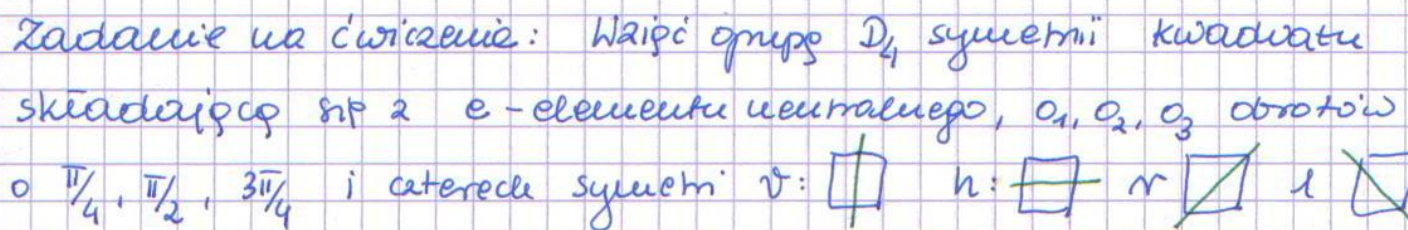 Zadanie na ćwiczenia: Wziąć grupę D₄ symetrii kwadratu
składającą się z e - elementu neutralnego, o₁, o₂, o₃ obrotów
o π/4, π/2, 3π/4 i czterech symetri v: h: r l